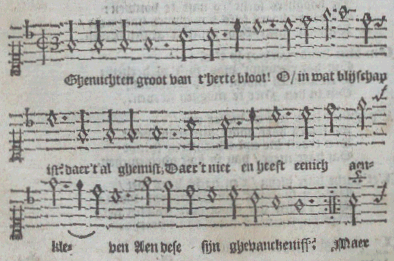 Ghenuchten groot van t'herte bloot! O/ in wat blijschap
ist: daer't al ghemist, Daer't niet en heeft eenich aen-
kle- ven Aen dese sijn ghevanckeniss: Maer